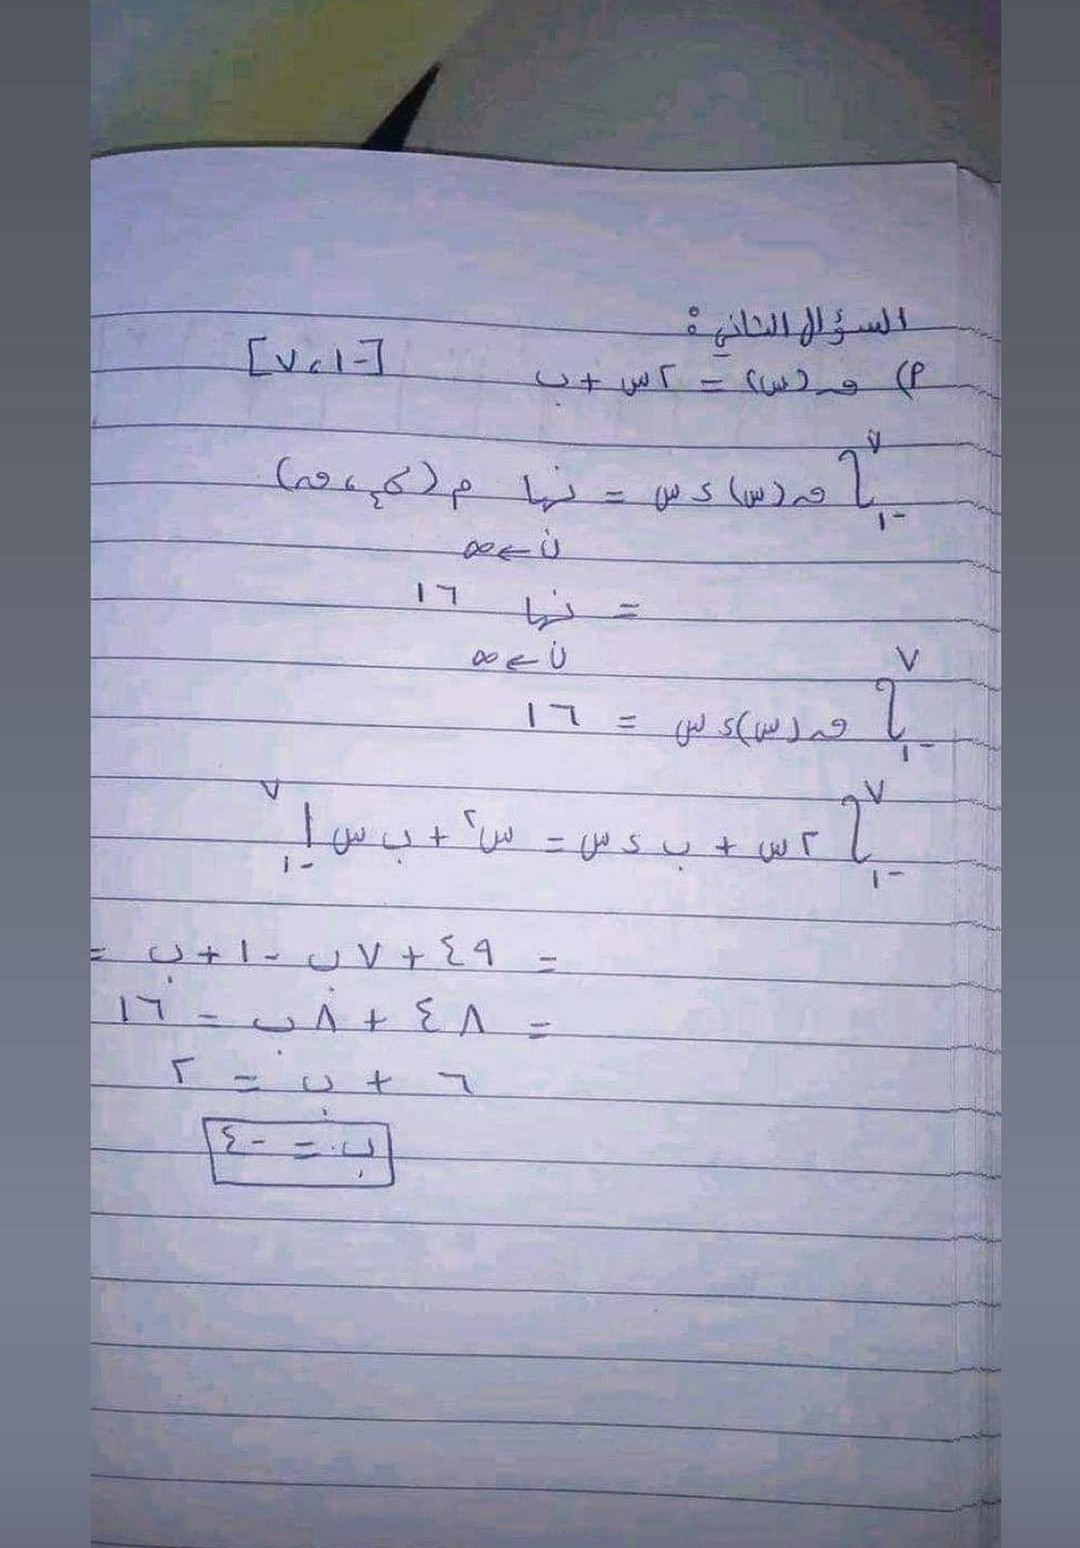 السؤال الثاني :
أ) ق(س) = ٢س + ب [-١، ٧]
∫_{-١}^{٧} ق(س) ءس = نها م(σن، ق)
ن←∞
= نها ١٦
ن←∞
∫_{-١}^{٧} ق(س) ءس = ١٦
∫_{-١}^{٧} ٢س + ب ءس = س² + ب س |_{-١}^{٧}
= ٤٩ + ٧ب - ١ + ب =
= ٤٨ + ٨ب = ١٦
٦ + ب = ٢
ب = -٤